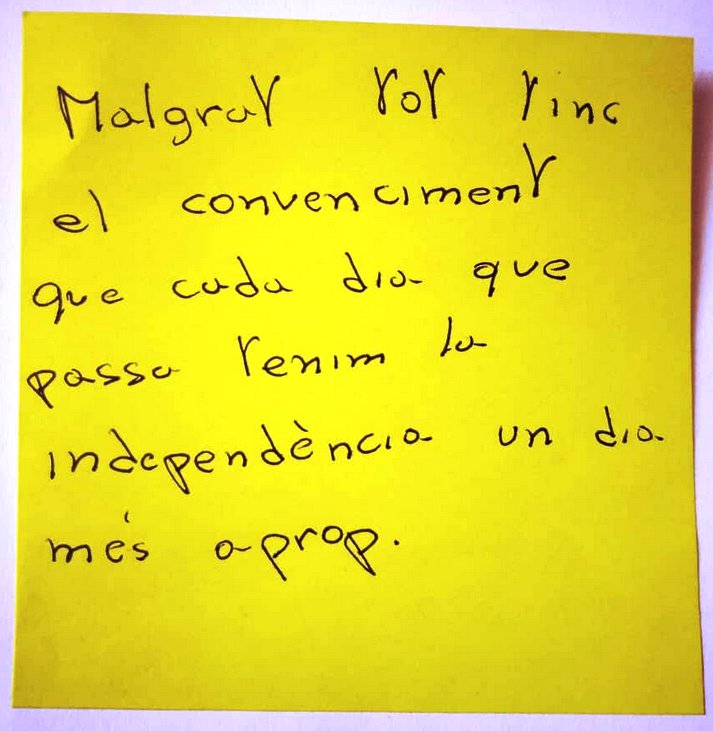 Malgrat tot tinc
el convenciment
que cada dia que
passa tenim la
independència un dia
més aprop.